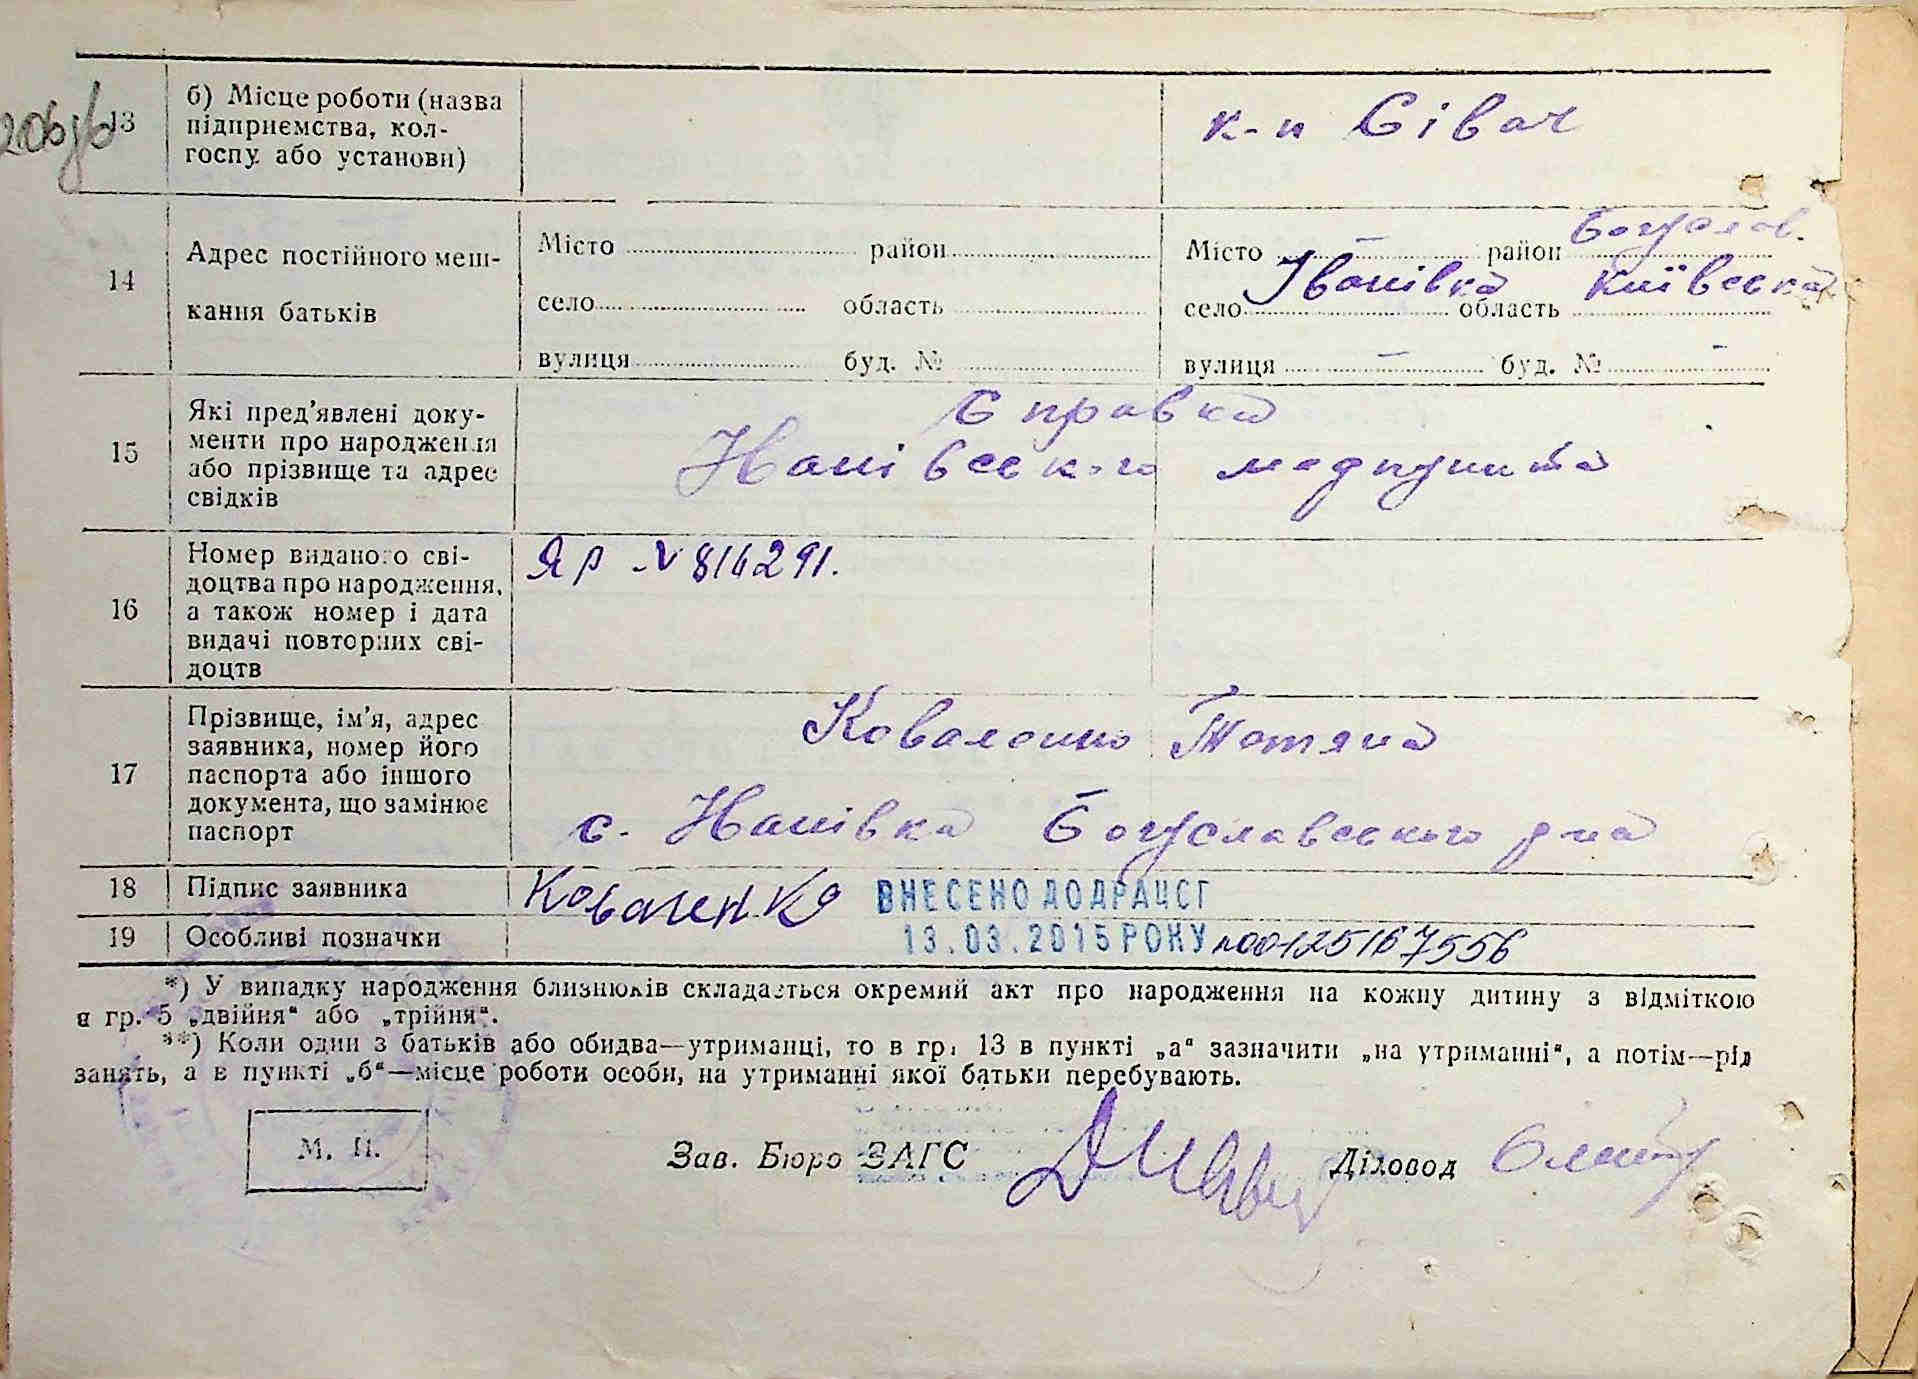 13
б) Місце роботи (назва
підприємства, кол-
госпу або установи)
к-п Сівач
14
Адрес постійного меш-
кання батьків
Місто район
село область
вулиця буд. №
Місто - район Богуслав.
село Іванівка область Київська
вулиця - буд. № -
15
Які пред'явлені доку-
менти про народження
або прізвище та адрес
свідків
Справка
Іванівського медпункта
16
Номер виданого сві-
доцтва про народження,
а також номер і дата
видачі повторних сві-
доцтв
ЯР № 814291.
17
Прізвище, ім'я, адрес
заявника, номер його
паспорта або іншого
документа, що замінює
паспорт
Коваленко Тетяна
с. Іванівка Богуславського р-на
18
Підпис заявника
Коваленко
ВНЕСЕНО ДО ДРАЦСГ
19
Особливі позначки
13.03.2015 РОКУ №00125167556
*) У випадку народження близнюків складається окремий акт про народження на кожну дитину з відміткою
в гр. 5 „двійня“ або „трійня“.
**) Коли один з батьків або обидва—утриманці, то в гр. 13 в пункті „а“ зазначити „на утриманні“, а потім—рід
занять, а в пункті „б“—місце роботи особи, на утриманні якої батьки перебувають.
М. П.
Зав. Бюро ЗАГС
Діловод